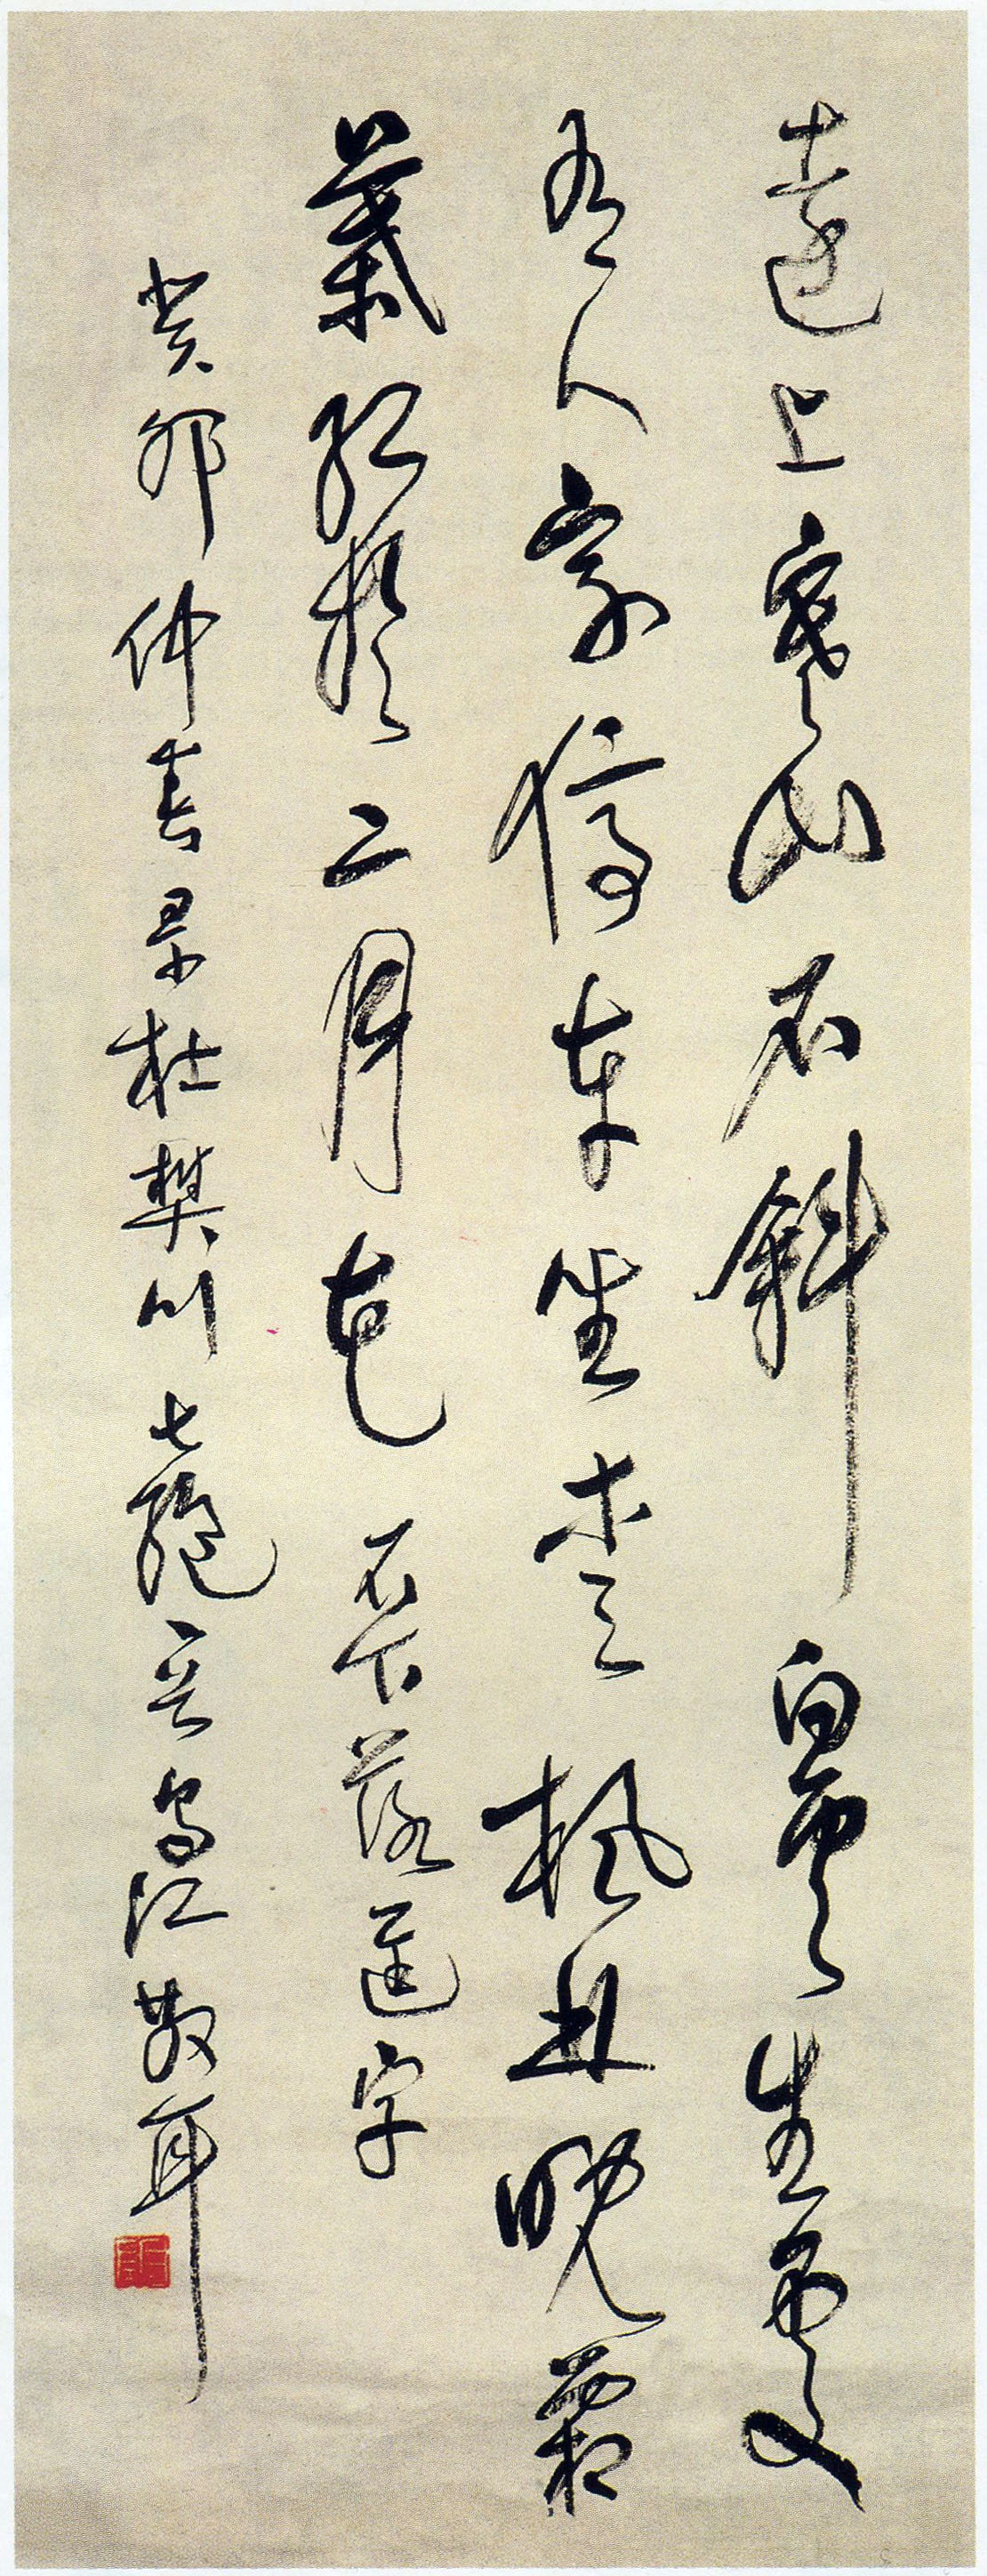 遠上寒山石斜白雲生處
有人家停車坐愛楓林晚霜
葉紅於二月花 石下落逕字
癸卯仲春录杜樊川七絕一首烏江散耳